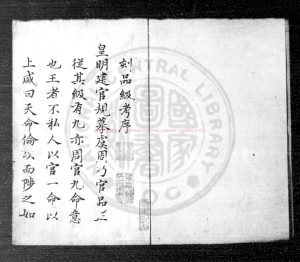 刻品級考序
皇明建官規摹虞周乃官品正
從其級有九亦周官九命意
也王者不私人以官一命以
上咸曰天命倫以而陟之如
CENTRAL LIBRARY